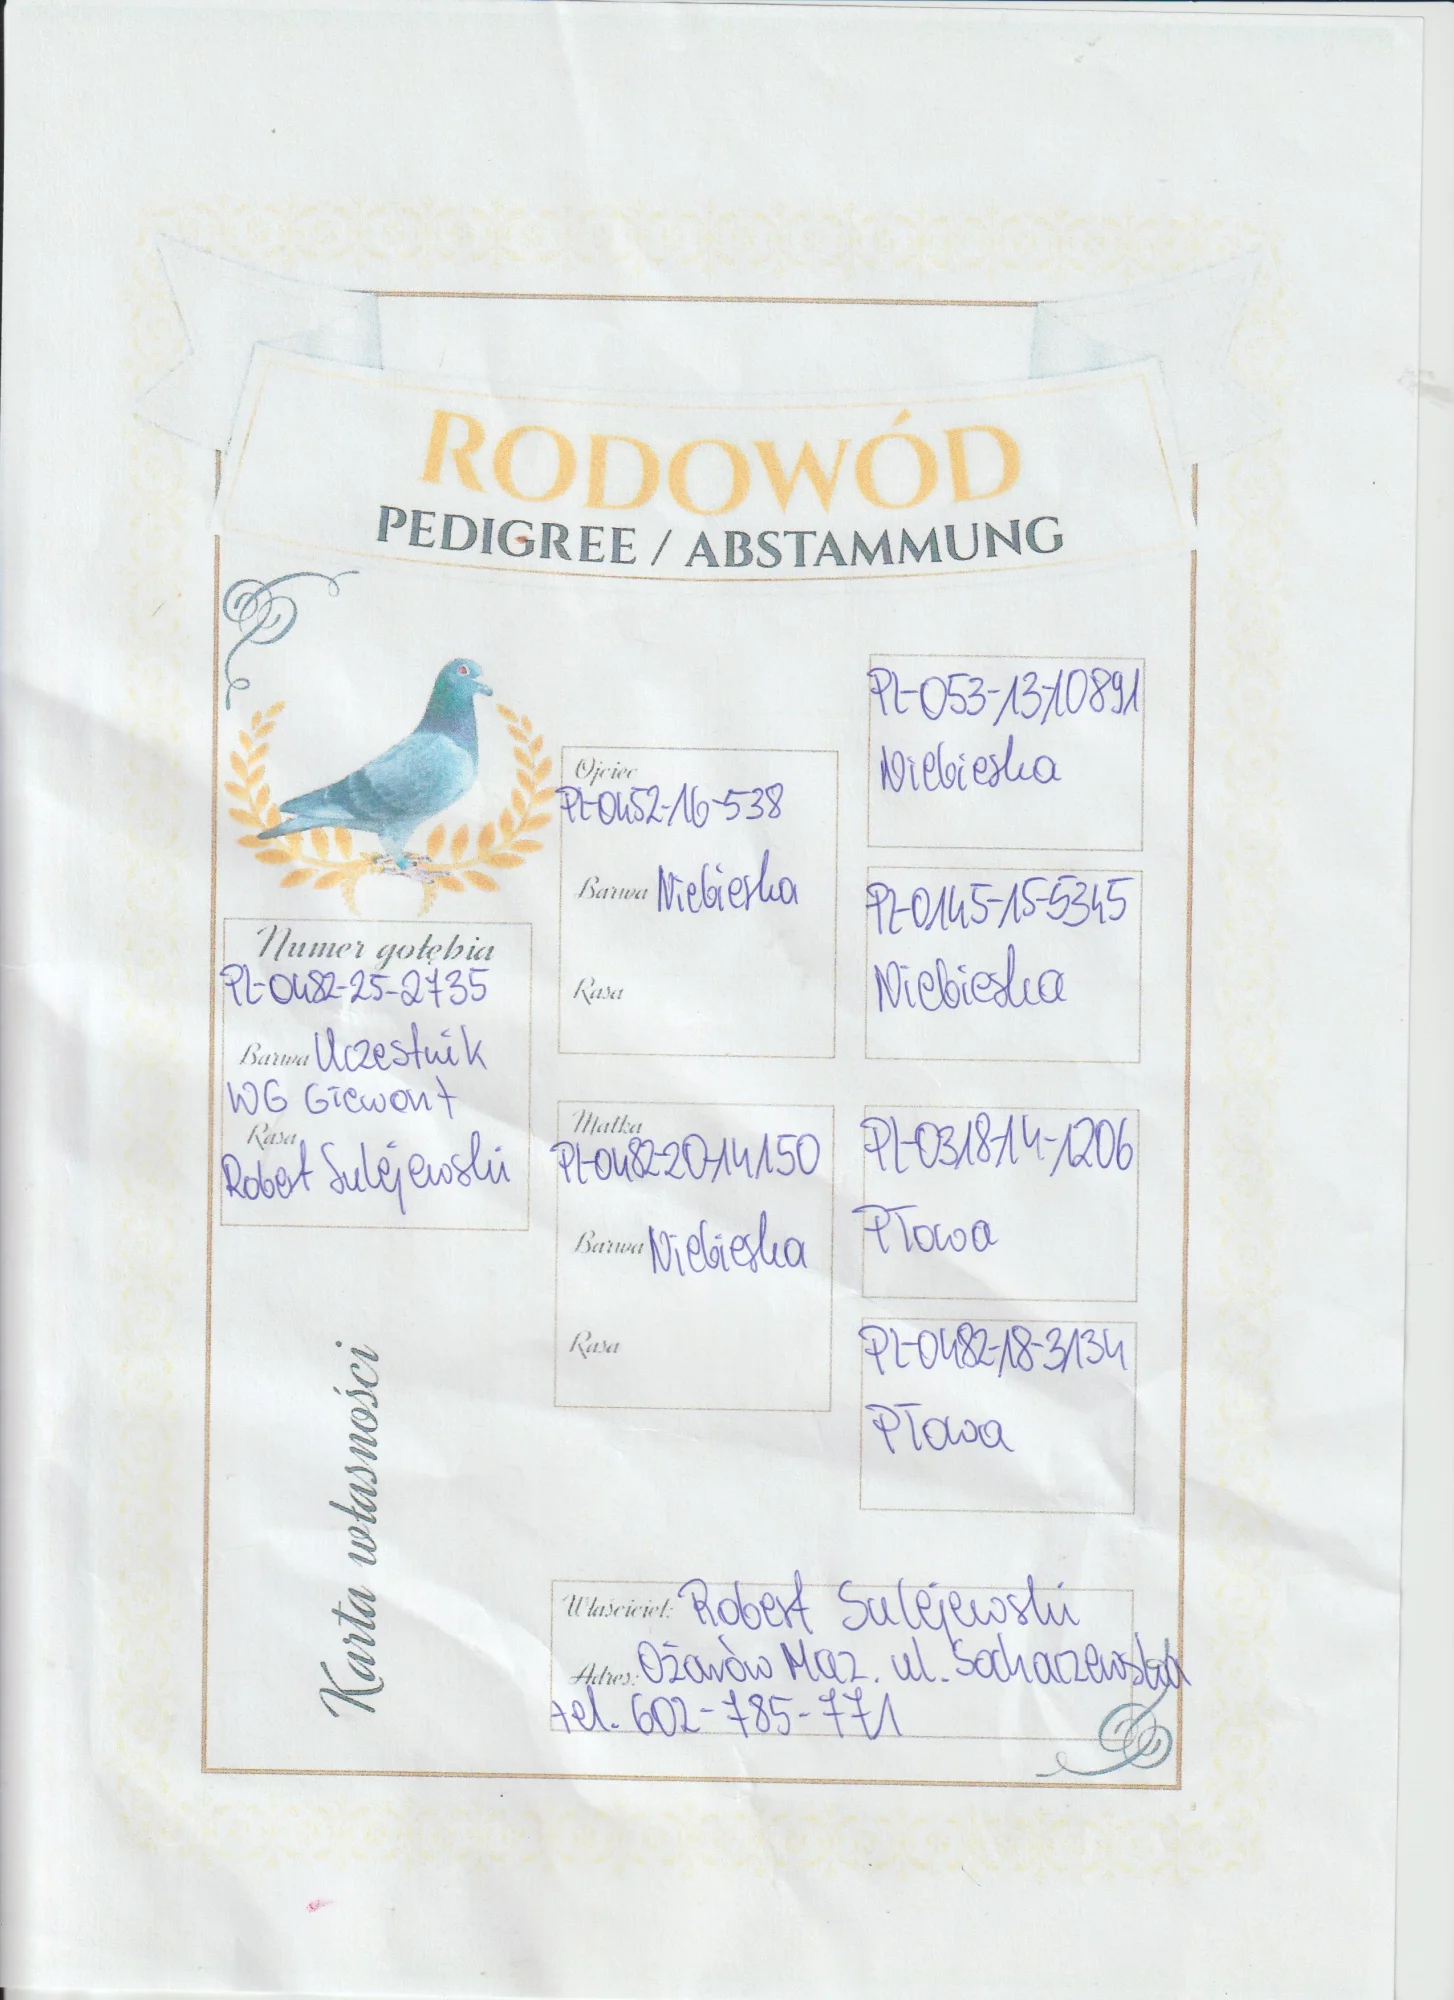 RODOWÓD
PEDIGREE / ABSTAMMUNG
Numer gołębia
PL-0482-25-2735
Barwa Uczestnik
WG Giewont
Rasa
Robert Sulejewski
Ojciec
PL-0452-16-538
Barwa Niebieska
Rasa
Matka
PL-0482-20-14150
Barwa Niebieska
Rasa
PL-053-13-10891
Niebieska
PL-0145-15-5345
Niebieska
PL-0318-14-1206
Płowa
PL-0482-18-3134
Płowa
Karta własności
Właściciel: Robert Sulejewski
Adres: Ożarów Maz. ul. Sochaczewska
tel. 602-785-771